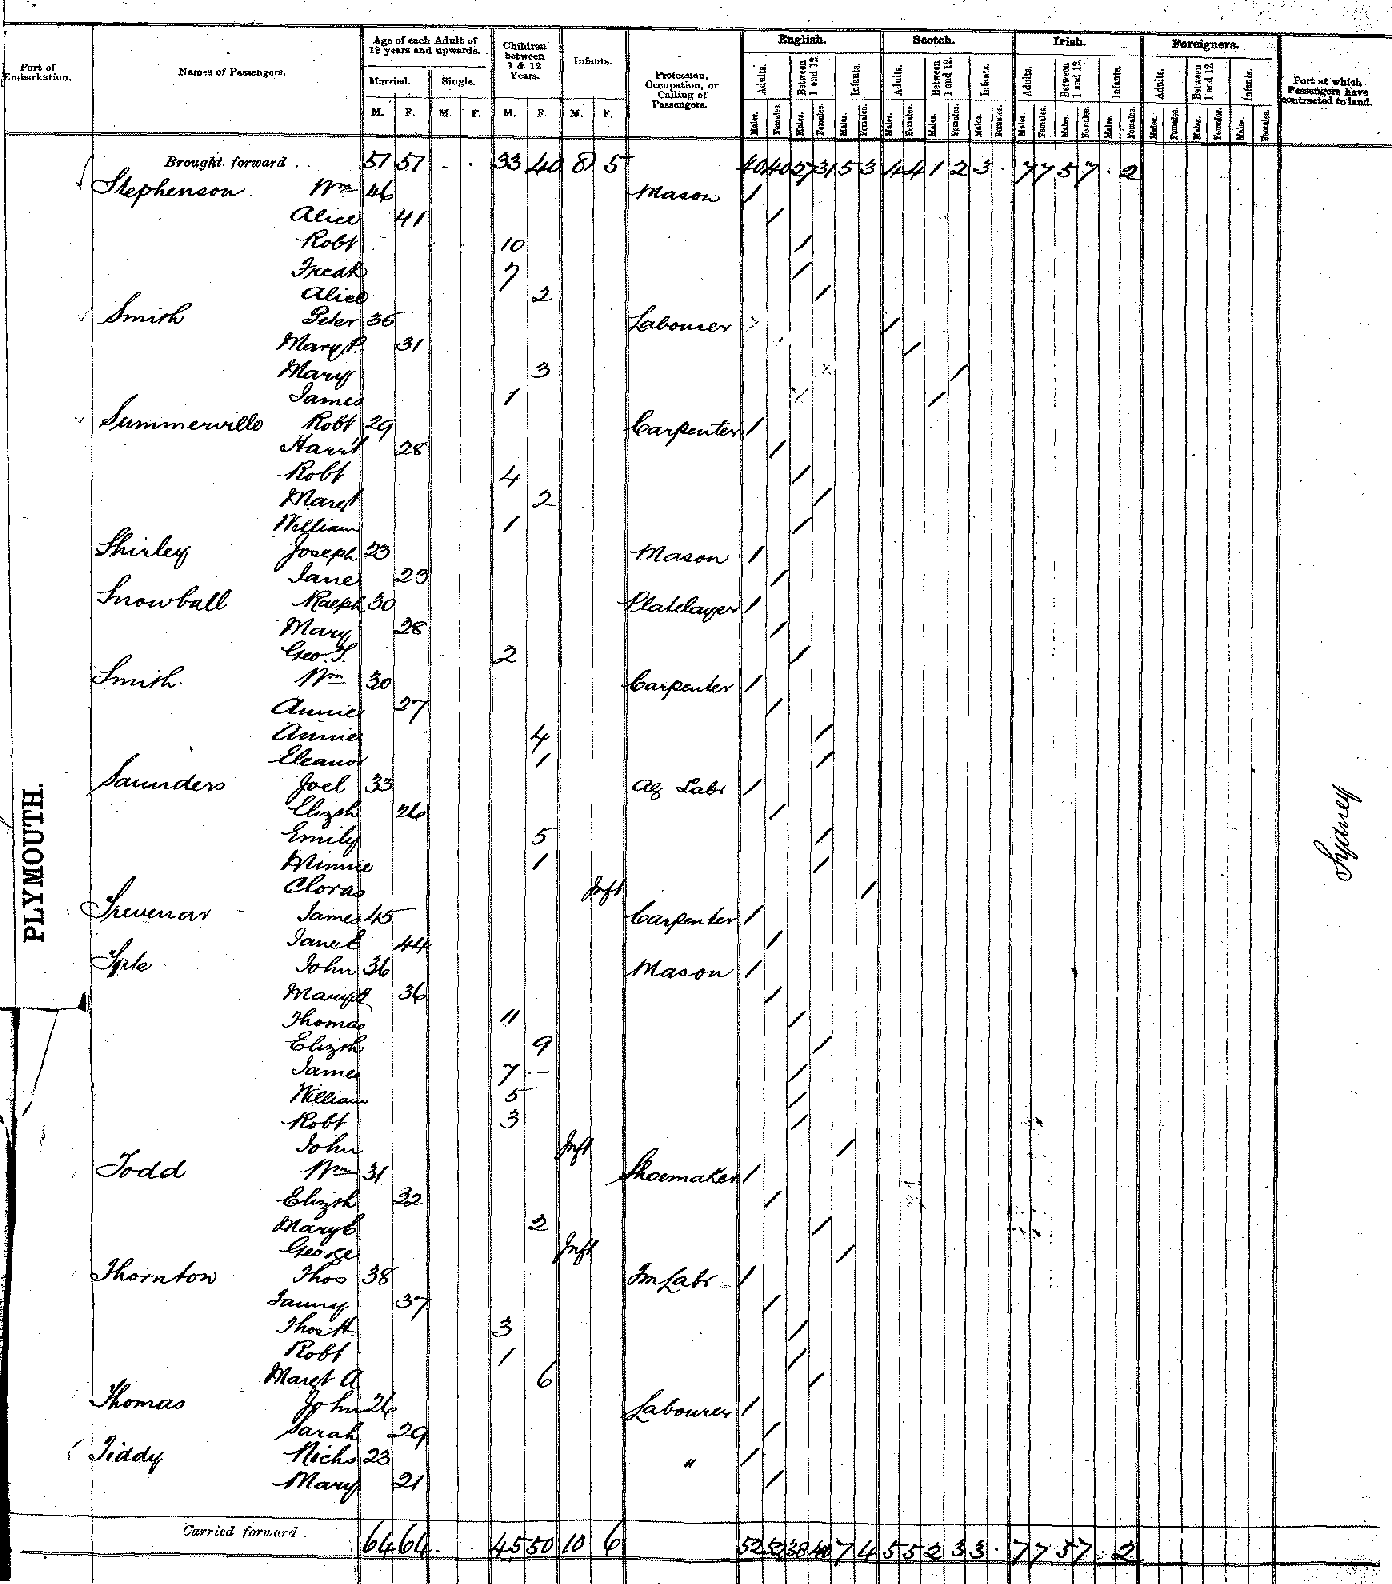 Port of Embarkation. Names of Passengers. Age of each Adult of 12 years and upwards. Children between 1 & 12 Years. Infants. Profession, Occupation, or Calling of Passengers. English. Scotch. Irish. Foreigners. Port at which Passengers have contracted to land.
Married. Single. Adults. Between 1 and 12. Infants. Adults. Between 1 and 12. Infants. Adults. Between 1 and 12. Infants. Adults. Between 1 and 12. Infants.
M. F. M. F. M. F. M. F. Males. Females. Males. Females. Males. Females. Males. Females. Males. Females. Males. Females. Males. Females. Males. Females. Males. Females. Males. Females. Males. Females. Males. Females.
Brought forward . . 57 57 . . 33 40 8 5 40 40 27 31 5 3 4 4 1 2 3 . 7 7 5 7 . 2
Stephenson Wm 46 Mason /
Alice 41 /
Robt 10 /
Fredk 7 /
Alice 2 /
Smith Peter 35 Labourer /
Mary P. 31 /
Mary 3 /
James 1 /
Summerville Robt 29 Carpenter /
Harrt 28 /
Robt 4 /
Margt 2 /
William 1 /
Shirley Joseph 23 Mason /
Jane 23 /
Snowball Ralph 30 Platelayer /
Mary 28 /
Geo. T. 2 /
Smith Wm 30 Carpenter /
Annie 27 /
Annie 4 /
Eleanor 1 /
Saunders Joel 33 Ag Labr /
Elizth 26 /
Emily 5 /
Minnie 1 /
Cloras Inft /
James 45 Carpenter /
Jane E 44 /
John 36 Mason /
Mary 36 /
Thomas 11 /
Elizth 9 /
James 7 /
William 5 /
Robt 3 /
John Inft /
Todd Wm 31 Shoemaker /
Elizth 32 /
Mary E 2 /
George Inft /
Thornton Thos 38 Labr /
Fanny 37 /
Thos H 3 /
Robt 1 /
Margt A 6 /
Thomas John 26 Labourer /
Sarah 29 /
Tiddy Nichs 23 " /
Mary 21 /
Carried forward . 64 64 . . 45 50 10 6 52 52 38 40 7 4 5 5 2 3 3 . 7 7 5 7 . 2
PLYMOUTH.
Sydney